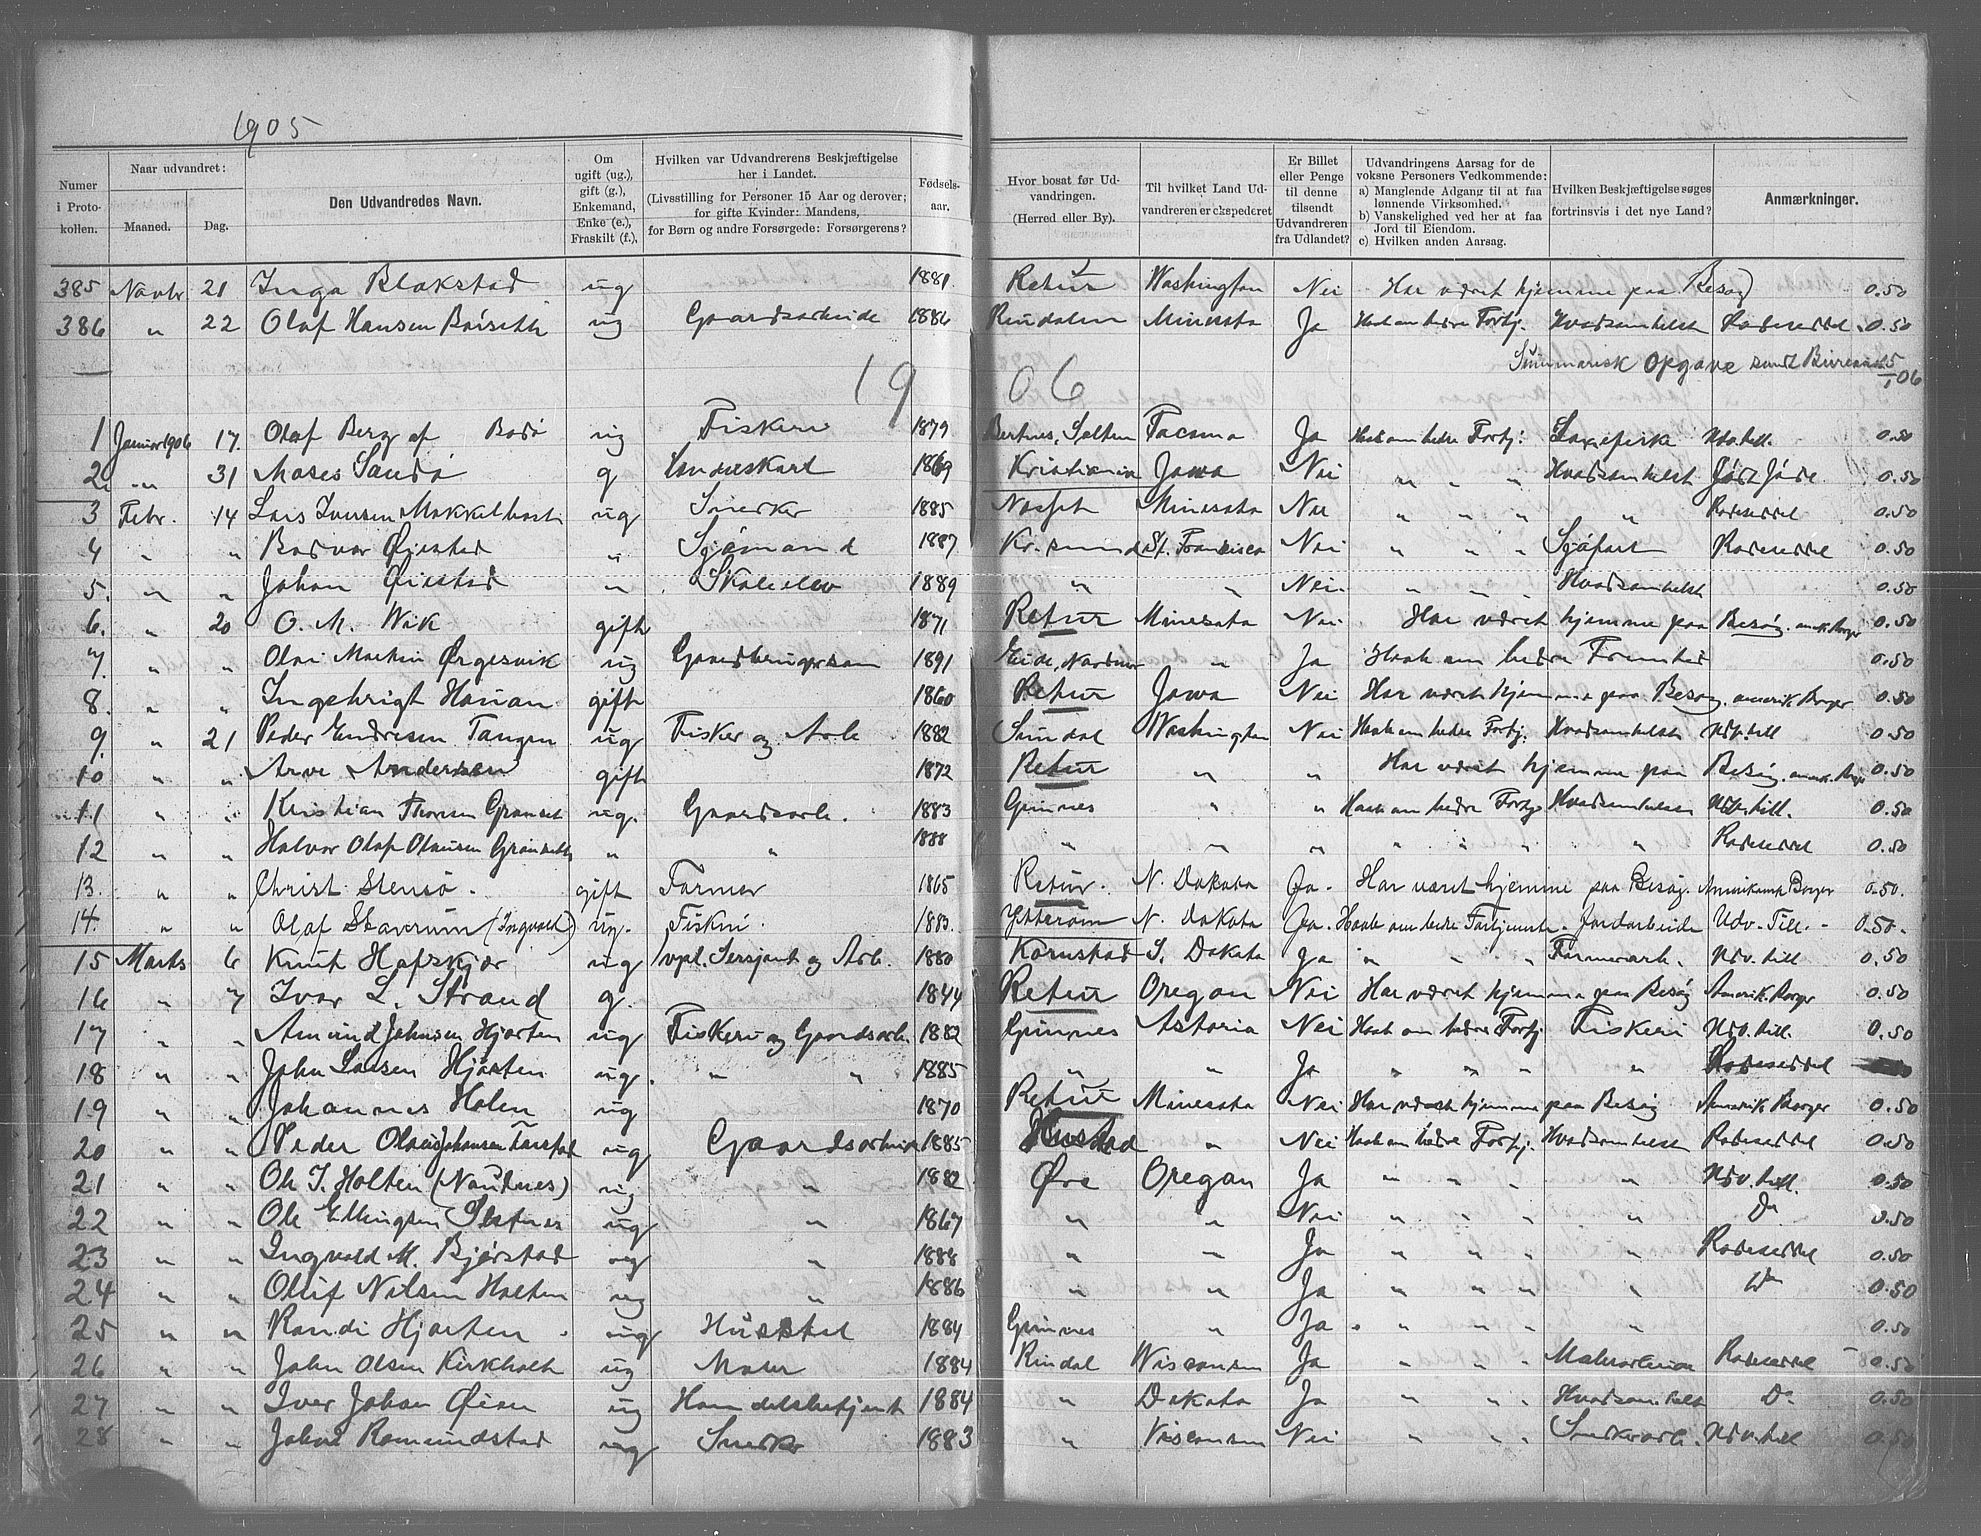 1905
Numer i Proto-kollen.
Naar udvandret:
Maaned.
Dag.
Den Udvandredes Navn.
Om ugift (ug.), gift (g.), Enkemand, Enke (e.), Fraskilt (f.),
Hvilken var Udvandrerens Beskjæftigelse her i Landet.
(Livsstilling for Personer 15 Aar og derover; for gifte Kvinder: Mandens, for Børn og andre Forsørgede: Forsørgerens?
Fødsels-aar.
Hvor bosat før Ud-vandringen.
(Herred eller By).
Til hvilket Land Ud-vandreren er ekspederet
Er Billet eller Penge til denne tilsendt Udvandreren fra Udlandet?
Udvandringens Aarsag for de voksne Personers Vedkommende:
a) Manglende Adgang til at faa lønnende Virksomhed.
b) Vanskelighed ved her at faa Jord til Eiendom.
c) Hvilken anden Aarsag.
Hvilken Beskjæftigelse søges fortrinsvis i det nye Land?
Anmærkninger.
385 Novbr 21 Inga Blakstad ug 1881. Retur Washington Nei Har været hjemme paa Besøg 0.50
386 " 22 Olaf Hansen ug Gaardsarbeide 1886 Rindalen Minesota Ja Haab om bedre Fortj. Hvadsomhelst Rodeseddel 0.50
Summarisk Opgave sendt 15/1 06
1906
1 Januar 1906 17. Olaf Berg af Bodø ug Fiskeri 1879 Salten Tacoma Ja Haab om bedre Fortj. Laxefiske Udv. till. 0.50
2 " " 31 Moses Sandø g 1869 Kristiania Jowa Nei " " " Hvadsomhelst 0.50
3 Febr. 14 Lars Iversen ug Snedker 1885 Nesset Minesota Nei " " " " Rodeseddel 0.50
4 " " Bodvar Øiestad " Sjømand 1887 Kr.sund St. Francisco Nei " " " Sjøfart Rodeseddel 0.50
5. " " Johan Øiestad " Skoleelev 1889 " " Nei. " " " Hvadsomhelst 0.50
6. " 20 O. M. Wik gift 1871 Retur Minesota Nei Har været hjemme paa Besøg. amrk. Borger 0.50
7. " " Olai Martin Ørgesvik ug Gaardbrugersøn 1891 Eide, Nordmør " Ja Haab om bedre Fremtid 0.50
8. " " Ingebrigt Hanan gift 1860 Retur Jowa Nei Har været hjemme paa Besøg. amerik Borger 0.50
9. " 21 Peder Endresen Tangen ug Fisker og Arb. 1882 Sundal Washington Nei Haab om bedre Fortj. Hvadsomhelst Udv. till 0.50
10. " " Arve Andersen gift 1872 Retur " " Har været hjemme paa Besøg. amrk. Borger 0.50
11 " " Kristian Thoresen ug. Gaardsarb. 1883 Grinnes " " Haab om bedre Fortj. Hvadsomhelst Udv. till. 0.50
12 " " Halvor Olaf Olausen " " 1888 " " " " " " " Rodeseddel 0.50
13. " " Christ. Stensø. gift Farmer 1865 Retur. N. Dakota Ja. Har været hjemme paa Besøg. Amerikansk Borger 0.50.
14. " " Olaf Stavrum (Ingvald) ug. Fiskeri. 1883. Ytterøen N. Dakota Ja. Haab om bedre Fortjeneste. Jordarbeide Udv. Till. 0.50.
15 Marts 6 Knut Hafskjær ug vpl. Sersjant og Arb. 1880 Kornstad S. Dakota Ja " " " Farmerarb. Udv. till 0.50
16 " 7 Ivar L. Strand g. 1844 Retur Oregon Nei Har været hjemme paa Besøg Amerik. Borger 0.50
17 " " Amund Johnsen Hjorten ug Fiskeri og Gaardsarb. 1882 Grinnes Astoria Nei Haab om bedre Fortj. Fiskeri Udv. till. 0.50
18 " " John Larsen Hjorten ug. " " 1885 " " Ja " " " " Rodeseddel
19 " " Johannes Holen ug 1870 Retur Minesota Nei Har været hjemme paa Besøg Amerik Borger 0.50
20 " " Peder Olaus Johansen ug Gaardsarbeide 1885 Hustad " Nei Haab om bedre Fortj. Hvadsomhelst Rodeseddel 0.50
21 " " Ole J. Holten (Naustnes) ug " 1882 Øre Oregon Ja " " " " Udv. till. 0.50
22 " " Ole Ellingsen ug " 1867 " " Nei " " " " Do 0.50
23 " " Ingvald M. Bjørstad ug " 1888 " " Ja " " " " Rodeseddel 0.50
24 " " Oluf Nilsen Holten ug " 1886 " " Ja " " " " Do 0.50
25 " " Randi Hjorten. ug Husstel 1884 Grinnes " Ja. " " " " 0.50
26 " " John Olsen Kirkholt ug Maler 1884 Rindal Wisconsin Ja " " " Malerarbeide Rodeseddel 0.50
27 " " Iver Johan Øien ug Handelsbetjent 1884 " Dakota Ja " " " Hvadsomhelst Do 0.50
28 " " Johne Romundstad ug Snedker 1883 " Visconsin Nei " " " Snedkerarb. Udv. till 0.50